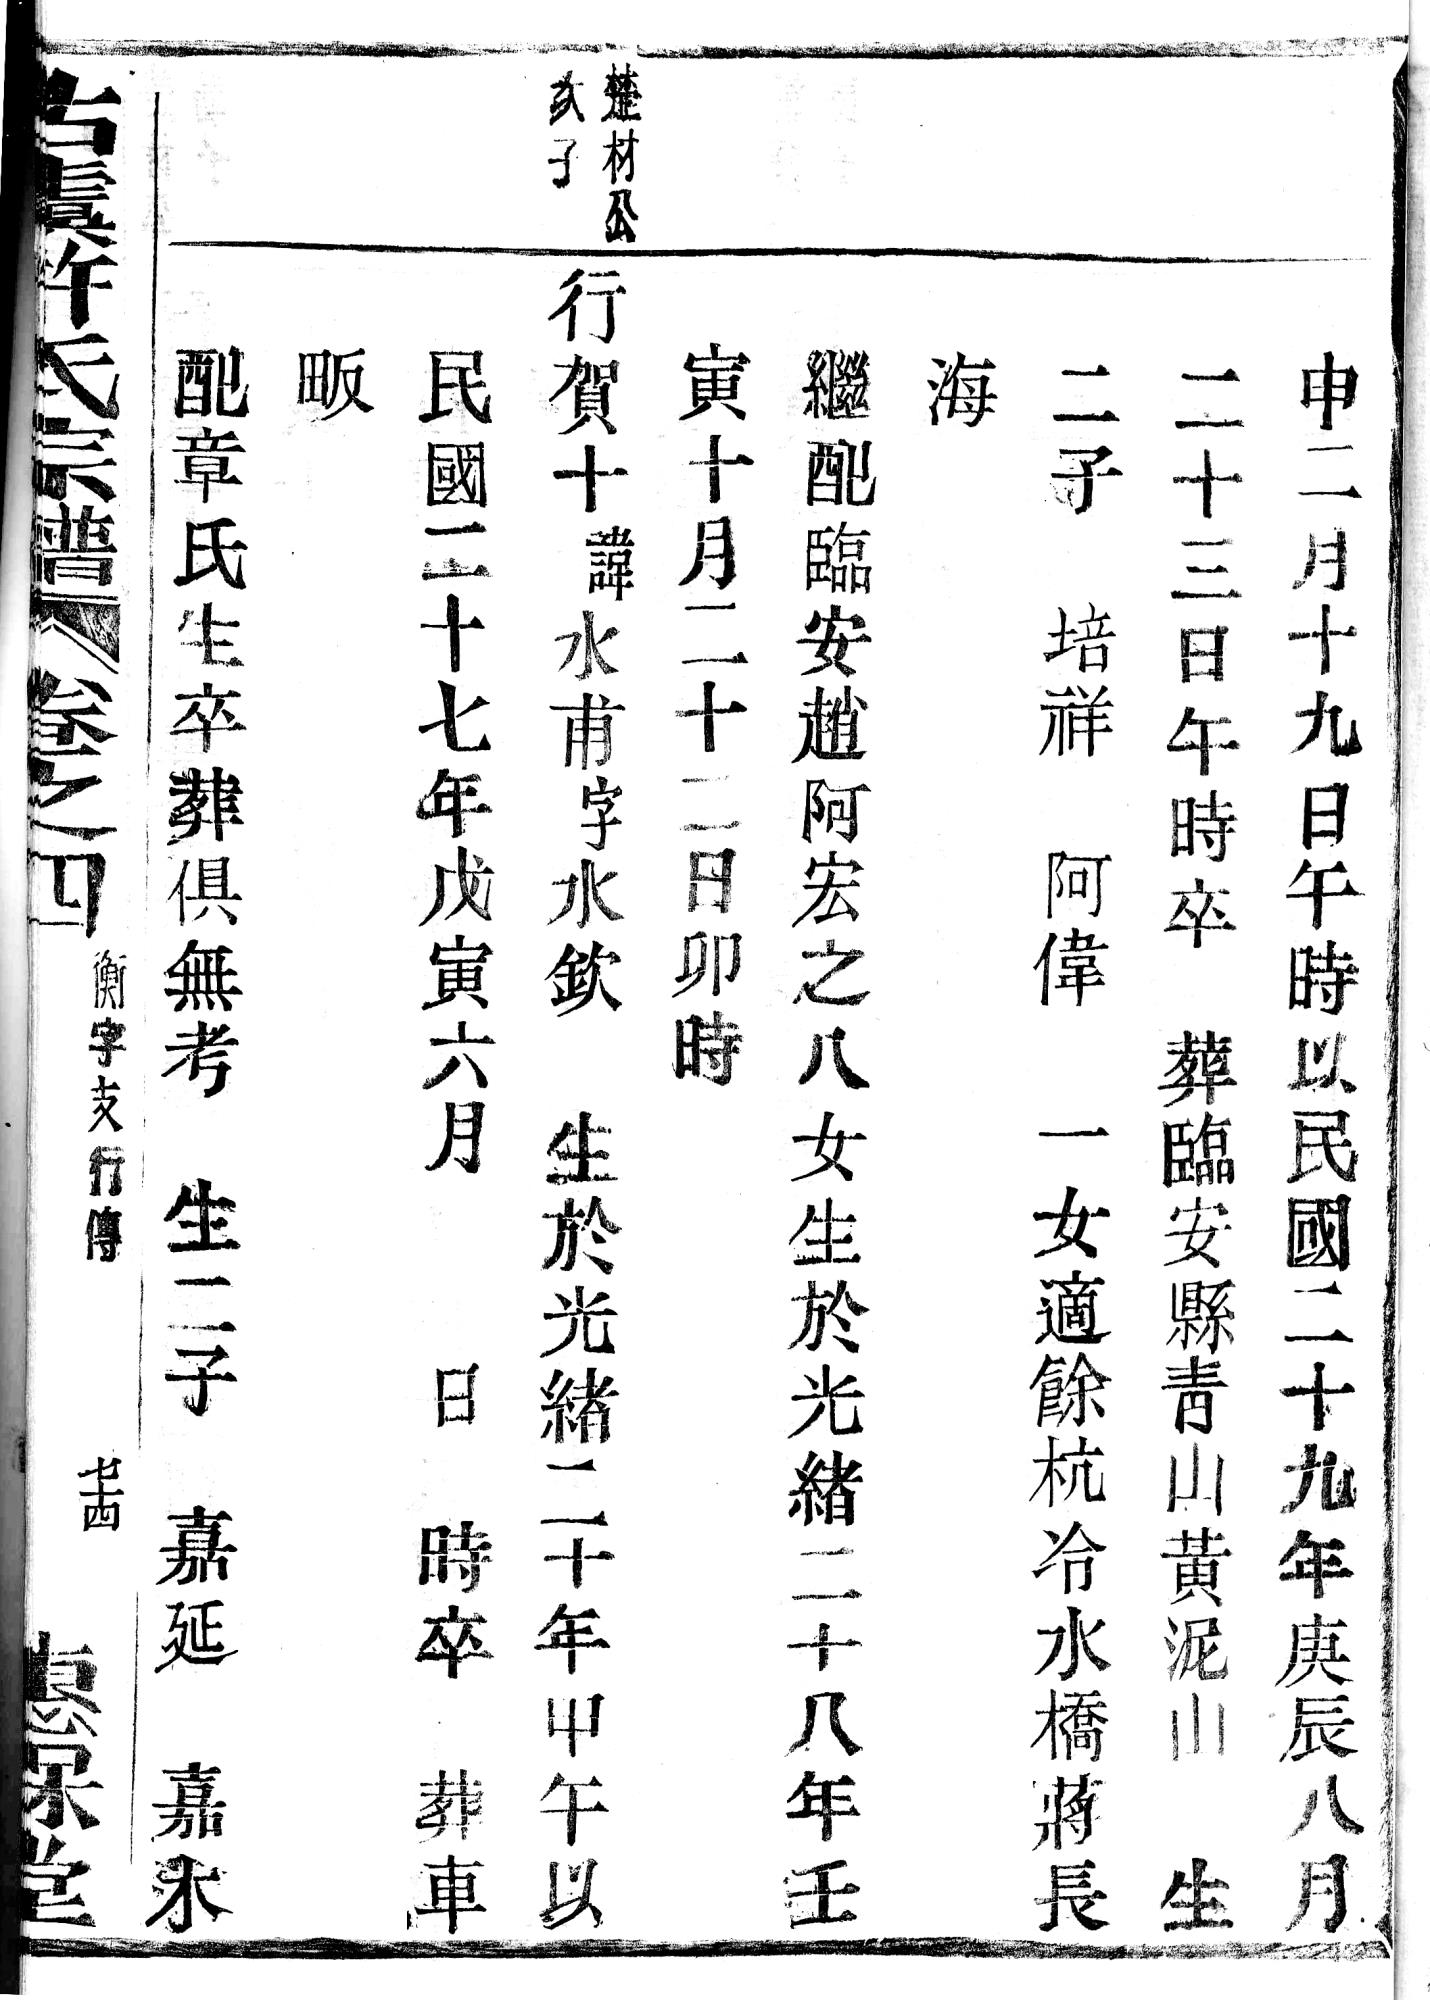 申二月十九日午時以民國二十九年庚辰八月
二十三日午時卒　葬臨安縣青山黃泥山　生
二子　培祥　阿偉　一女適餘杭冷水橋蔣長
海
繼配臨安趙阿宏之八女生於光緒二十八年壬
寅十月二十二日卯時
楚材公
次子
行賀十　諱水甫字水欽　生於光緒二十年甲午以
民國二十七年戊寅六月　日　時卒　葬車
畈
配章氏生卒葬俱無考　生二子　嘉延　嘉永
古虞許氏宗譜　卷之四　衡字支行傳　七十四　惠保堂